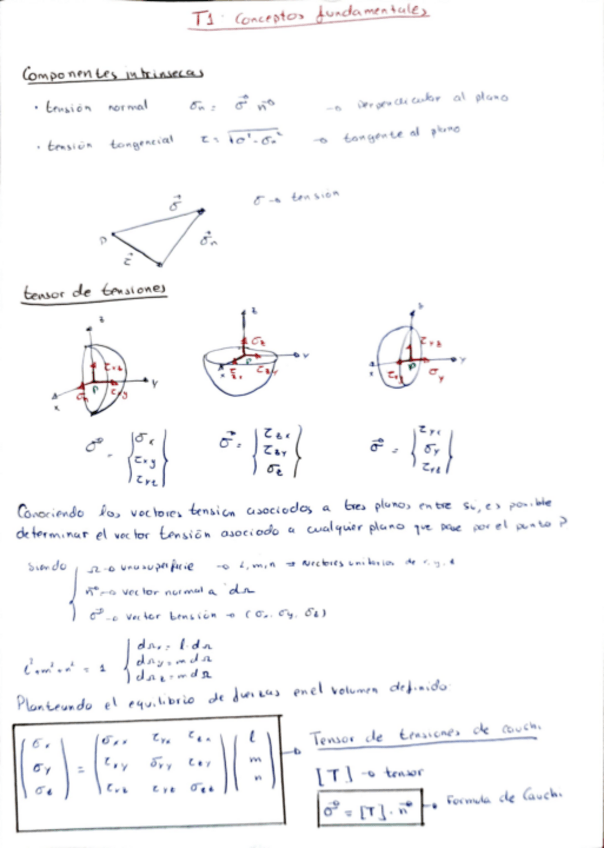 T1: Conceptos fundamentales
Componentes intrinsecas
· tensión normal σn = σ⃗ n⃗ → Perpendicular al plano
· tensión tangencial τ = √σ² - σn² → tangente al plano
σ → tensión
σ⃗
P
σ⃗n
τ⃗
tensor de tensiones
z z z
τxz σz τyz
P y P y P y
σx τxy τzx τzy τyx σy
x x x
σ⃗ = {σx τxy τxz} σ⃗ = {τzx τzy σz} σ⃗ = {τyx σy τyz}
Conociendo los vectores tension asociados a tres planos entre si, es posible
determinar el vector tensión asociado a cualquier plano que pase por el punto P
siendo Ω → una superficie → l, m, n → vectores unitarios de x, y, z
n⃗ → vector normal a dΩ
σ⃗ → vector tensión → (σx, σy, σz)
l² + m² + n² = 1
dΩx = l · dΩ
dΩy = m dΩ
dΩz = m dΩ
Planteando el equilibrio de fuerzas en el volumen definido:
σx σxx τyx τzx l
σy = τxy σyy τzy m
σz τxz τyz σzz n
→ Tensor de tensiones de Cauchi
[T] → tensor
σ⃗ = [T] · n⃗ → Formula de Cauchi